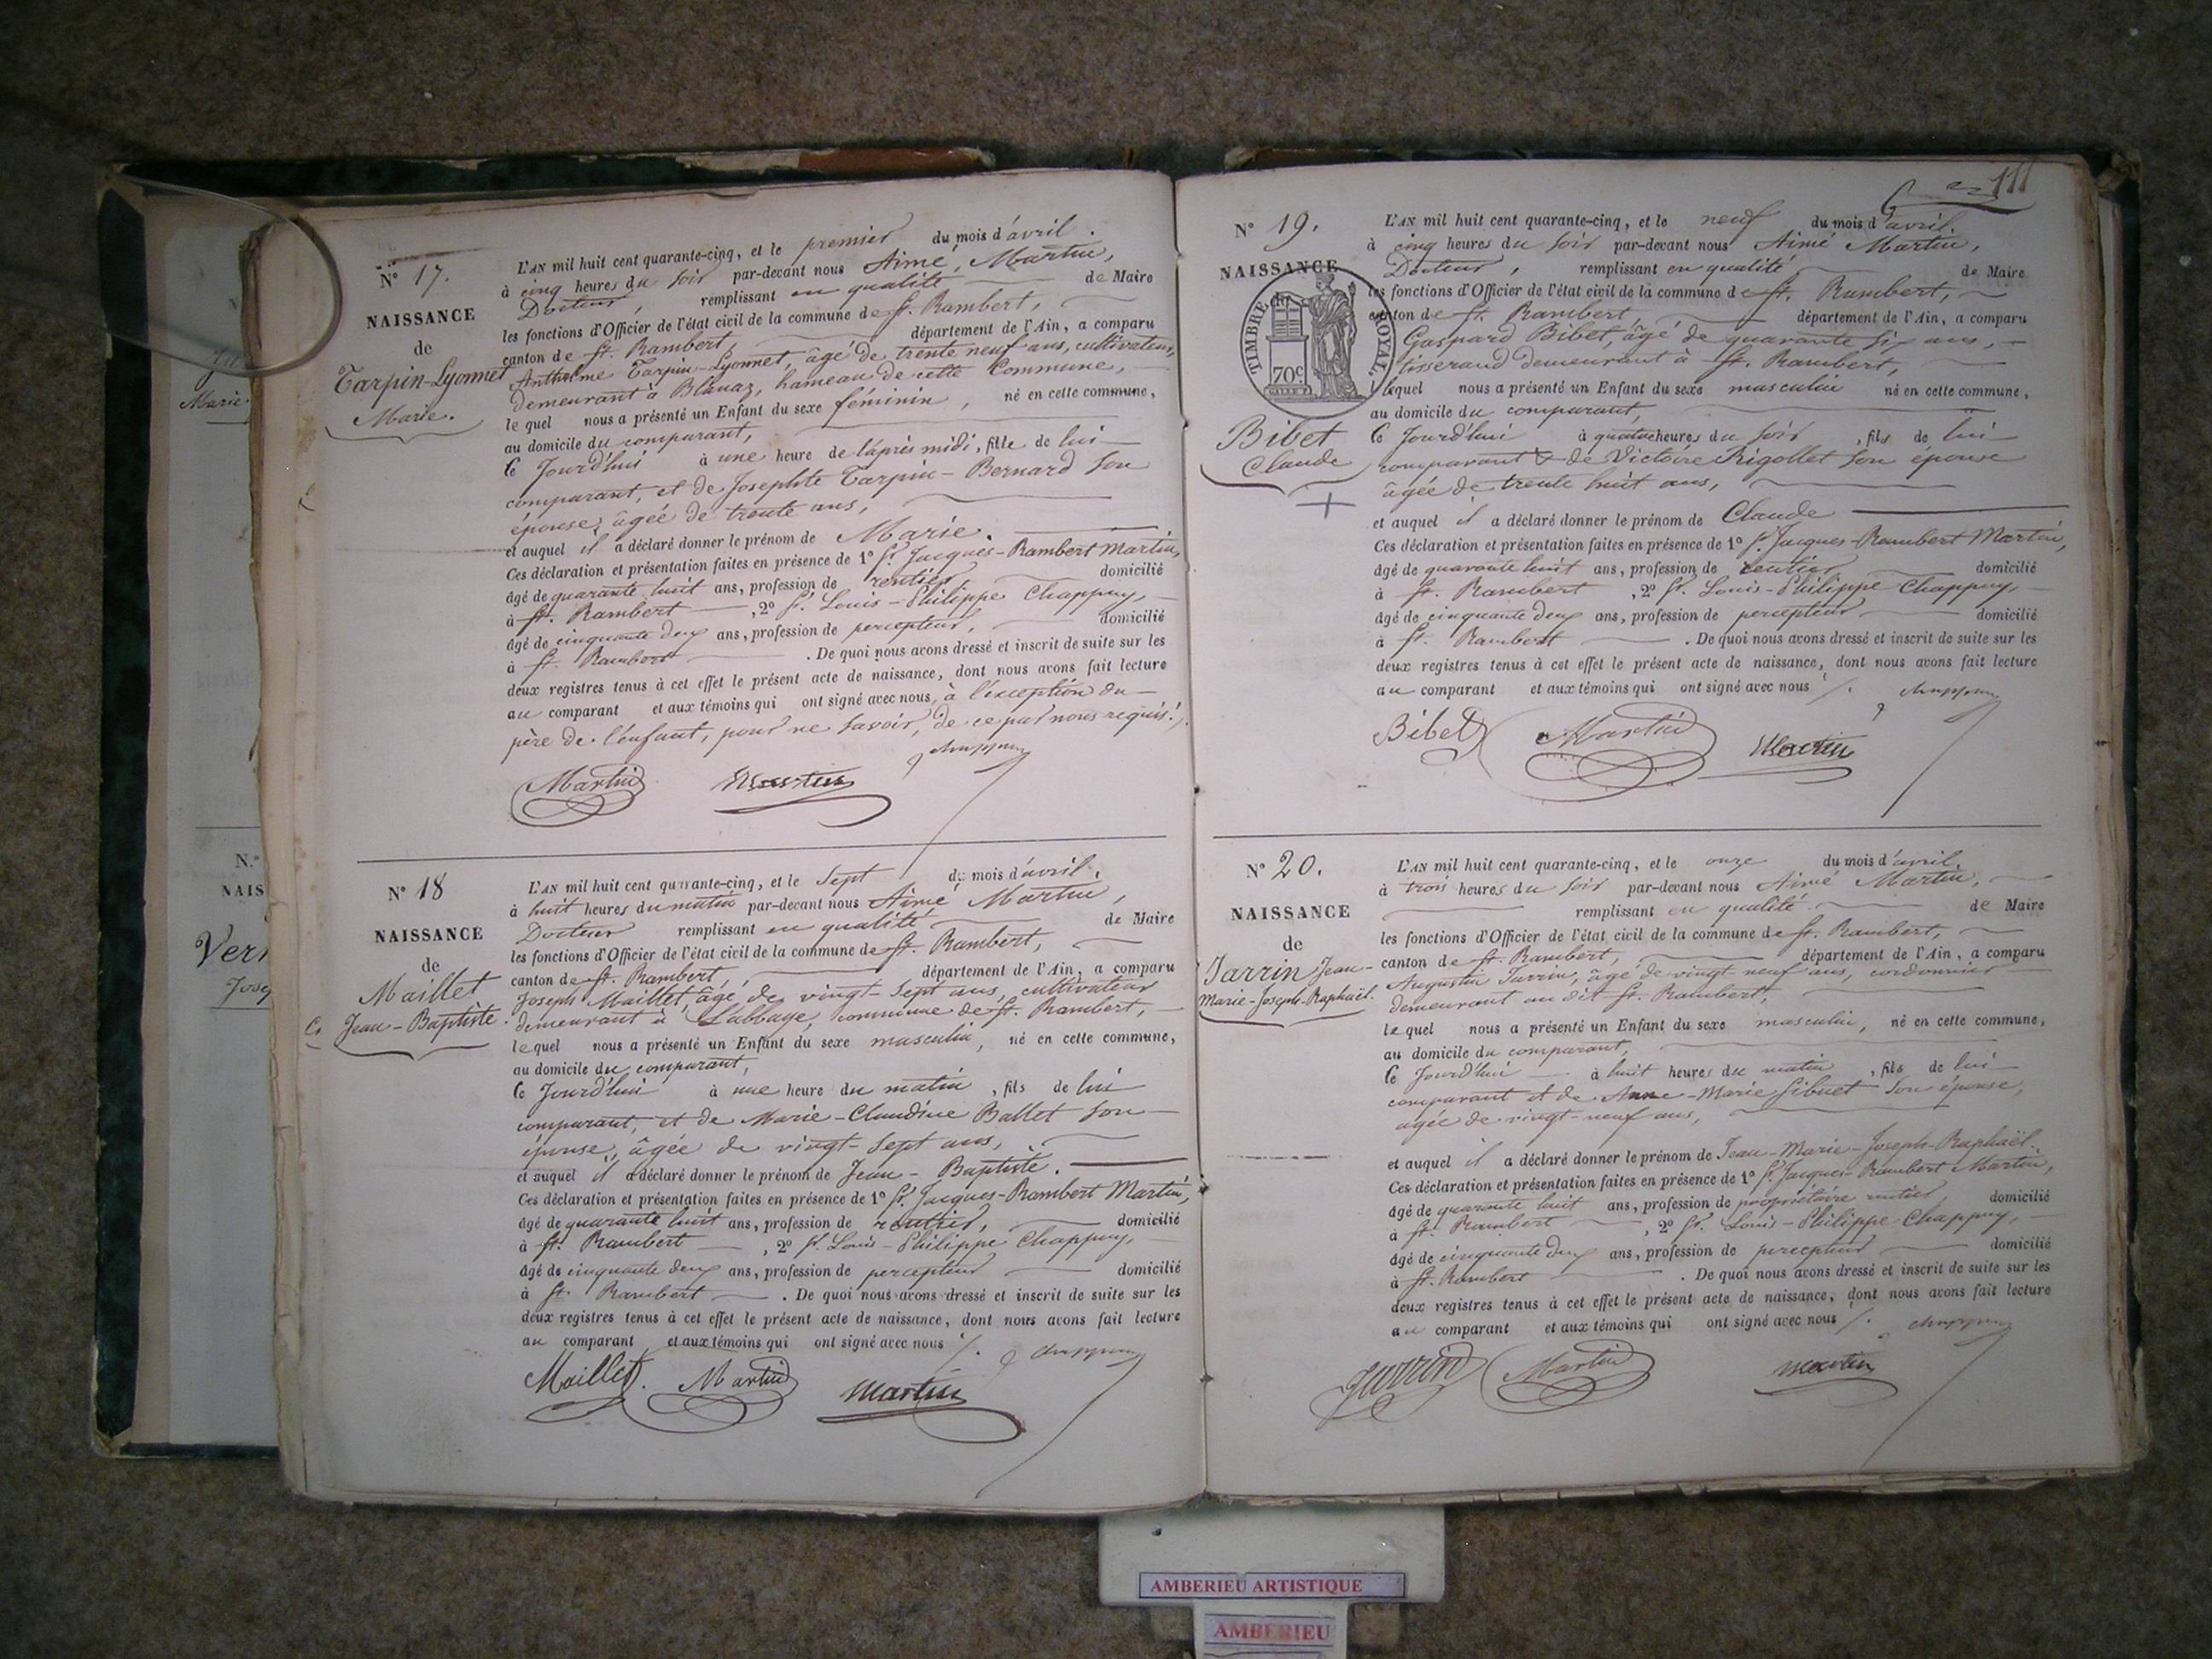 N° 17.
NAISSANCE
de
Tarpin-Lyonnet
Marie.
L'AN mil huit cent quarante-cinq, et le premier du mois d'avril.
à cinq heures du soir par-devant nous Aimé Martin,
Docteur, remplissant en qualité de Maire
les fonctions d'Officier de l'état civil de la commune de St. Rambert,
canton de St. Rambert, département de l'Ain, a comparu
Anthelme Tarpin-Lyonnet, âgé de trente neuf ans, cultivateur,
demeurant à Blanaz, hameau de cette Commune,
le quel nous a présenté un Enfant du sexe féminin, né en cette commune,
au domicile du comparant,
Ce Jourd'hui à une heure de l'après midi, fille de lui
comparant, et de Josephte Tarpin-Bernard son
épouse, âgée de trente ans,
et auquel il a déclaré donner le prénom de Marie.
Ces déclaration et présentation faites en présence de 1° Sr. Jacques-Rambert Martin,
âgé de quarante huit ans, profession de rentier domicilié
à St. Rambert, 2° Sr. Louis-Philippe Chappuy,
âgé de cinquante deux ans, profession de percepteur, domicilié
à St. Rambert. De quoi nous avons dressé et inscrit de suite sur les
deux registres tenus à cet effet le présent acte de naissance, dont nous avons fait lecture
au comparant et aux témoins qui ont signé avec nous, à l'exception du
père de l'enfant, pour ne savoir, de ce par nous requis ./.
Martin Martin Chappuy
N° 18
NAISSANCE
de
Maillet
Jean-Baptiste.
L'AN mil huit cent quarante-cinq, et le Sept du mois d'avril,
à huit heures du matin par-devant nous Aimé Martin,
Docteur remplissant en qualité de Maire
les fonctions d'Officier de l'état civil de la commune de St. Rambert,
canton de St. Rambert, département de l'Ain, a comparu
Joseph Maillet, âgé de vingt-Sept ans, cultivateur
demeurant à L'abbaye, commune de St. Rambert,
le quel nous a présenté un Enfant du sexe masculin, né en cette commune,
au domicile du comparant,
Ce Jourd'hui à une heure du matin, fils de lui
comparant, et de Marie-Claudine Ballet son
épouse, âgée de vingt-Sept ans,
et auquel il a déclaré donner le prénom de Jean-Baptiste.
Ces déclaration et présentation faites en présence de 1° Sr. Jacques-Rambert Martin,
âgé de quarante huit ans, profession de rentier, domicilié
à St. Rambert, 2° Sr. Louis-Philippe Chappuy,
âgé de cinquante deux ans, profession de percepteur domicilié
à St. Rambert. De quoi nous avons dressé et inscrit de suite sur les
deux registres tenus à cet effet le présent acte de naissance, dont nous avons fait lecture
au comparant et aux témoins qui ont signé avec nous ./.
Maillet. Martin Martin Chappuy
111
N° 19.
NAISSANCE
TIMBRE ROYAL.
70c
Bibet
Claude
L'AN mil huit cent quarante-cinq, et le neuf du mois d'avril.
à cinq heures du soir par-devant nous Aimé Martin,
Docteur, remplissant en qualité de Maire
les fonctions d'Officier de l'état civil de la commune de St. Rambert,
canton de St. Rambert, département de l'Ain, a comparu
Gaspard Bibet, âgé de quarante six ans,
tisserand demeurant à St. Rambert,
lequel nous a présenté un Enfant du sexe masculin né en cette commune,
au domicile du comparant,
Ce Jourd'hui à quatre heures du soir, fils de lui
comparant & de Victoire Rigollet son épouse
âgée de trente huit ans,
et auquel il a déclaré donner le prénom de Claude
Ces déclaration et présentation faites en présence de 1° Sr. Jacques-Rambert Martin,
âgé de quarante huit ans, profession de rentier domicilié
à St. Rambert, 2° Sr. Louis-Philippe Chappuy,
âgé de cinquante deux ans, profession de percepteur domicilié
à St. Rambert. De quoi nous avons dressé et inscrit de suite sur les
deux registres tenus à cet effet le présent acte de naissance, dont nous avons fait lecture
au comparant et aux témoins qui ont signé avec nous ./. Chappuy
Bibet Martin Martin
N° 20.
NAISSANCE
de
Jarrin Jean-
Marie-Joseph-Raphaël.
L'AN mil huit cent quarante-cinq, et le onze du mois d'avril,
à trois heures du soir par-devant nous Aimé Martin,
remplissant en qualité de Maire
les fonctions d'Officier de l'état civil de la commune de St. Rambert,
canton de St. Rambert, département de l'Ain, a comparu
Augustin Jarrin, âgé de vingt neuf ans, cordonnier
demeurant au dit St. Rambert,
le quel nous a présenté un Enfant du sexe masculin, né en cette commune,
au domicile du comparant,
Ce Jourd'hui à huit heures du matin, fils de lui
comparant et de Anne-Marie Sibuet son épouse,
âgée de vingt-neuf ans,
et auquel il a déclaré donner le prénom de Jean-Marie-Joseph-Raphaël.
Ces déclaration et présentation faites en présence de 1° Sr. Jacques-Rambert Martin,
âgé de quarante huit ans, profession de propriétaire rentier, domicilié
à St. Rambert, 2° Sr. Louis-Philippe Chappuy,
âgé de cinquante deux ans, profession de percepteur domicilié
à St. Rambert. De quoi nous avons dressé et inscrit de suite sur les
deux registres tenus à cet effet le présent acte de naissance, dont nous avons fait lecture
au comparant et aux témoins qui ont signé avec nous ./. Chappuy
Jarrin Martin Martin
AMBERIEU ARTISTIQUE
AMBERIEU